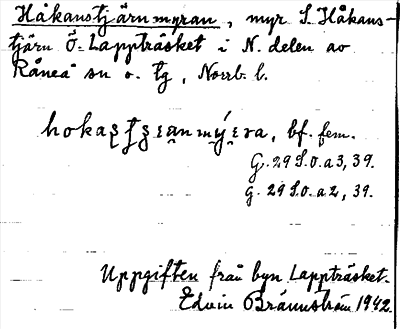 Håkanstjärnmyran, myr S. Håkans-
tjärn Ö. Lappträsket i N. delen av
Råneå sn o. tg, Norrb. l.
hokaʂʈʂɛa̤nmýɛra, bf. fem.
G. 29 S.O. a 3, 39.
G. 29 S.O. a 2, 39.
Uppgiften från byn Lappträsket.
Edvin Brännström 1942.